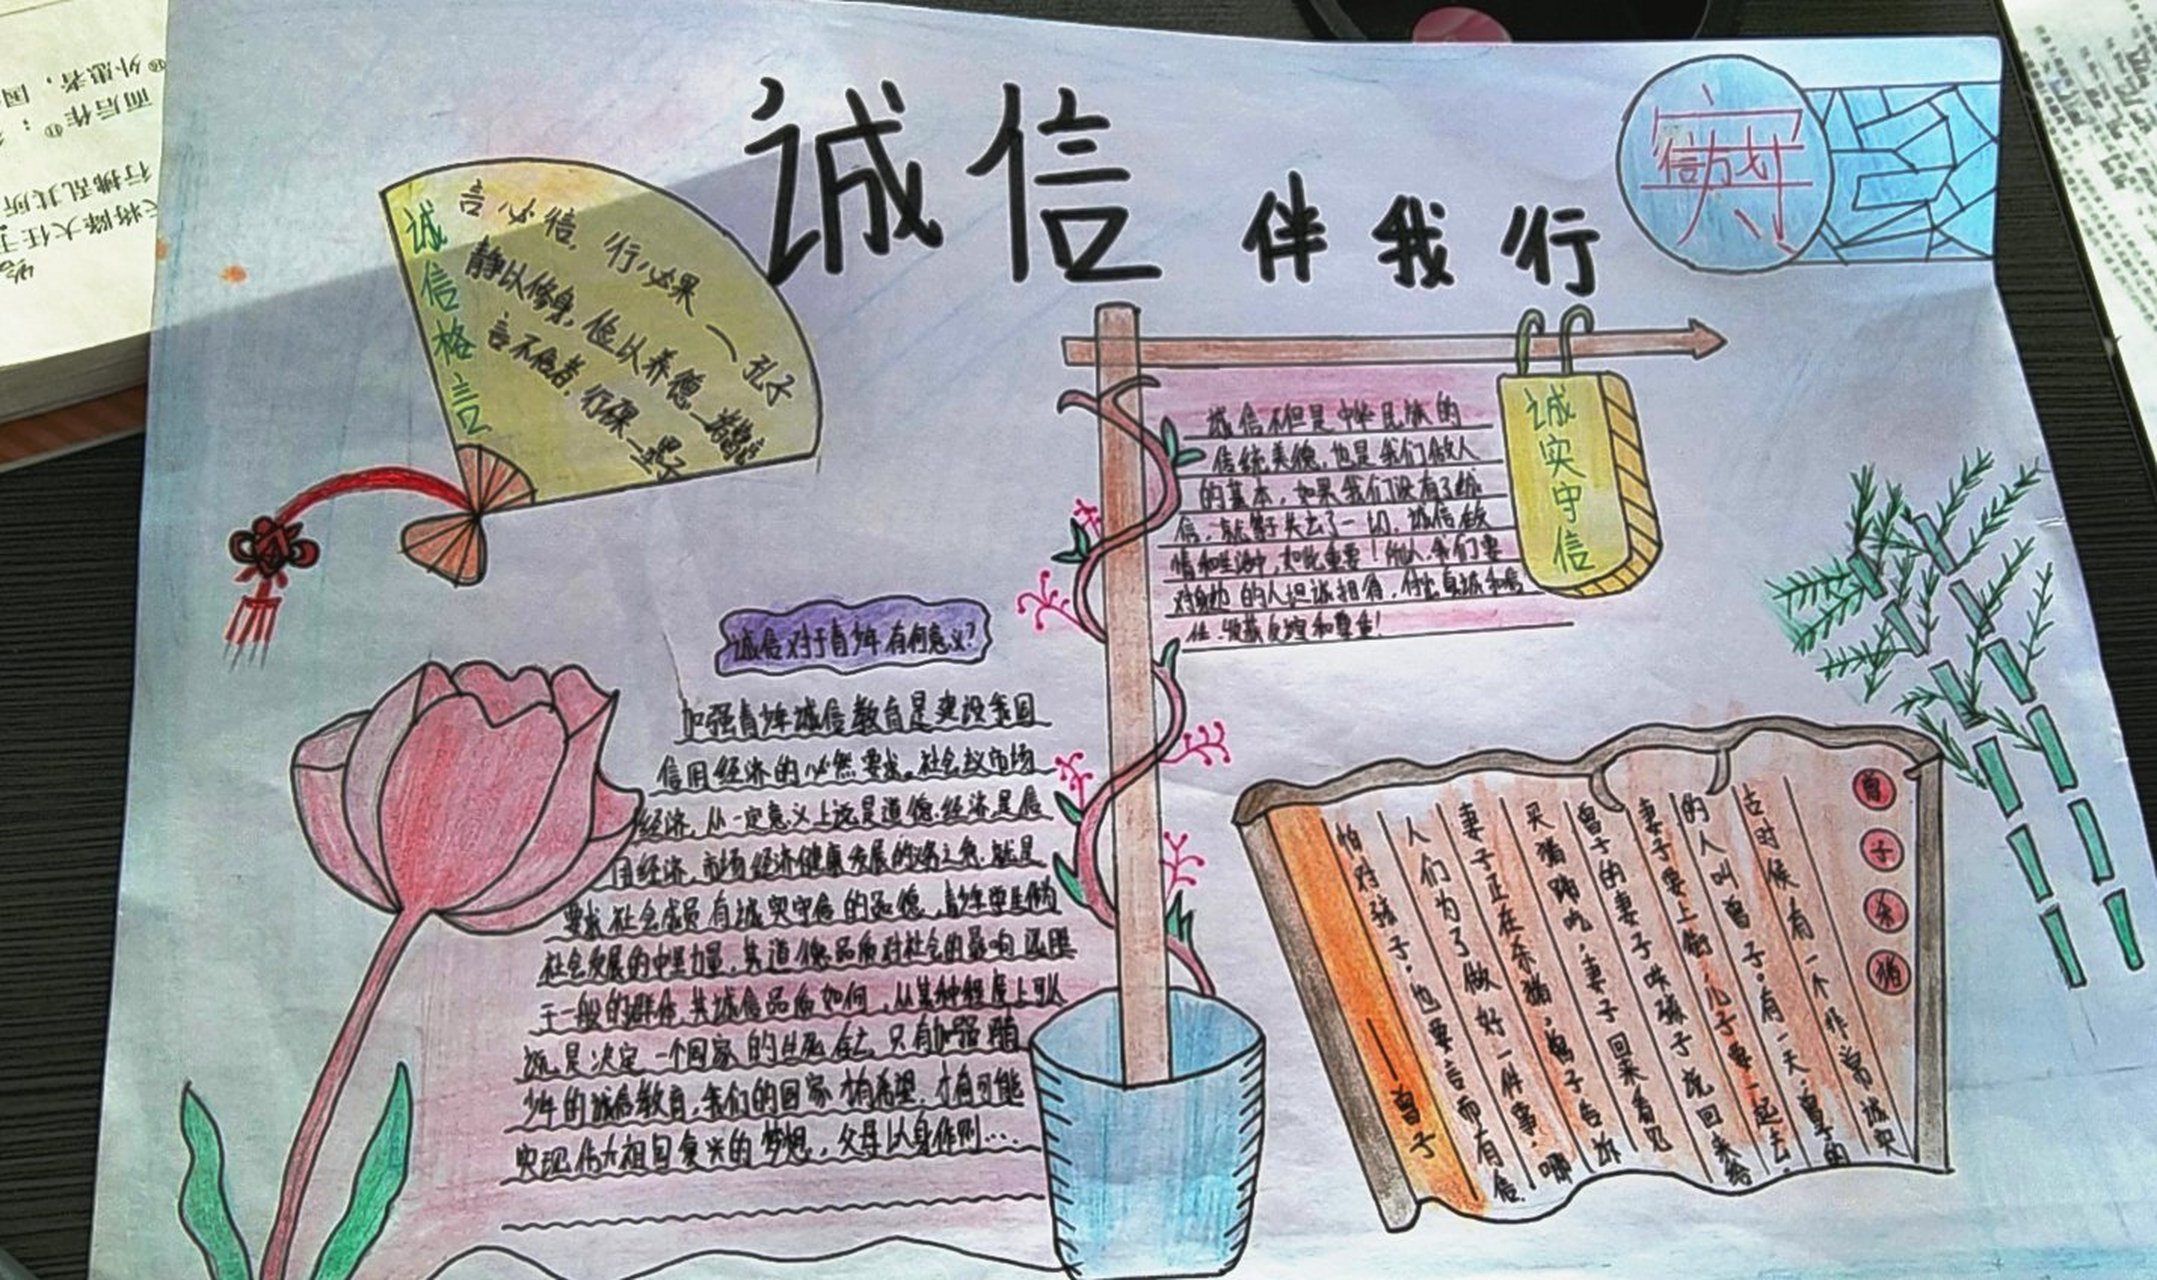 诚信
伴我行
诚信格言
言必信,行必果——孔子
静以修身,俭以养德—诸葛亮
言不信者,行不果—墨子
诚实守信
诚信不但是中华民族的
传统美德,也是我们做人
的基本,如果我们没有了诚
信,就等于失去了一切,诚信在友
情和生活中,如此重要!所以,我们要
对身边的人坦诚相待,付出真诚和信
任,收获友谊和尊重!
诚信对于青少年有何意义?
加强青少年诚信教育是建设我国
信用经济的必然要求。社会议市场
经济,从一定意义上说是道德经济是信
用经济,市场经济健康发展的
要求社会成员有诚实守信的品德,青少年学生做为
社会发展的中坚力量,其道德品质对社会的影响远胜
于一般的群体,其诚信品质如何,从某种程度上可以
说是决定一个国家的生死存亡,只有加强青
少年的诚信教育,我们的国家才有希望,才有可能
实现伟大祖国复兴的梦想。父母以身作则…
曾子杀猪
古时候有一个非常诚实
的人叫曾子。有一天,曾子的
妻子要上街,儿子要一起去,
曾子的妻子哄孩子说回来给
买猪肉吃,妻子回来看见
妻子正在杀猪,曾子告诉
人们为了做好一件事,哪
怕对孩子,也要言而有信。
——曾子